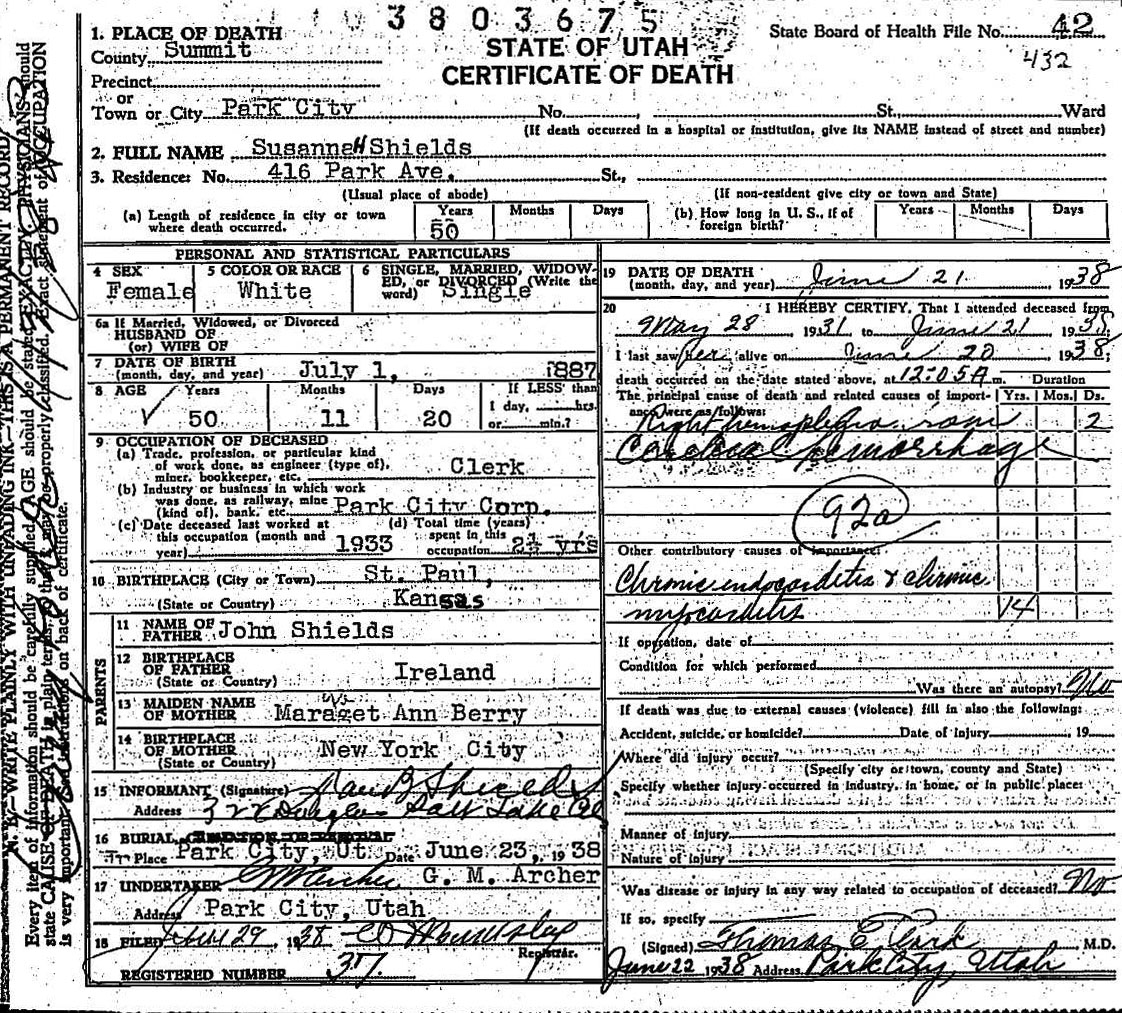 3803675
1. PLACE OF DEATH
State Board of Health File No. 42
County Summit
STATE OF UTAH
432
CERTIFICATE OF DEATH
Precinct
or
Town or City Park City No. St., Ward
(If death occurred in a hospital or institution, give its NAME instead of street and number)
2. FULL NAME Susanna H Shields
3. Residence: No. 416 Park Ave. St.,
(Usual place of abode) (If non-resident give city or town and State)
(a) Length of residence in city or town where death occurred. Years 50 Months Days
(b) How long in U. S., if of foreign birth? Years Months Days
PERSONAL AND STATISTICAL PARTICULARS
4 SEX Female
5 COLOR OR RACE White
6 SINGLE, MARRIED, WIDOWED, or DIVORCED (Write the word) Single
6a If Married, Widowed, or Divorced
HUSBAND OF
(or) WIFE OF
7 DATE OF BIRTH
(month, day, and year) July 1, 1887
8 AGE Years Months Days If LESS than
50 11 20 1 day, hrs.
or min.?
9 OCCUPATION OF DECEASED
(a) Trade, profession, or particular kind
of work done, as engineer (type of),
miner, bookkeeper, etc. Clerk
(b) Industry or business in which work
was done, as railway, mine
(kind of), bank, etc. Park City Corp.
(c) Date deceased last worked at
this occupation (month and
year) 1933
(d) Total time (years)
spent in this
occupation 2½ yrs
10 BIRTHPLACE (City or Town) St. Paul,
(State or Country) Kansas
PARENTS
11 NAME OF
FATHER John Shields
12 BIRTHPLACE
OF FATHER
(State or Country) Ireland
13 MAIDEN NAME
OF MOTHER Maraget Ann Berry
14 BIRTHPLACE
OF MOTHER
(State or Country) New York City
15 INFORMANT (Signature) Dan B Shields
Address Douglas Salt Lake
16 BURIAL, CREMATION OR REMOVAL
Place Park City, Ut. Date June 23, 1938
17 UNDERTAKER G M Archer G. M. Archer
Address Park City, Utah
18 FILED 29 1938
Registrar.
REGISTERED NUMBER 37
19 DATE OF DEATH
(month, day, and year) June 21 1938
20 I HEREBY CERTIFY, That I attended deceased from
May 28 1931 to June 21 1938,
I last saw her alive on June 20 1938,
death occurred on the date stated above, at 12:05A m. Duration
The principal cause of death and related causes of importance were as follows: Yrs. Mos. Ds.
Right hemiplegia from 2
Cerebral hemorrhage
92a
Other contributory causes of importance:
Chronic endocarditis & chronic
myocarditis 14
If operation, date of
Condition for which performed
Was there an autopsy? No
If death was due to external causes (violence) fill in also the following:
Accident, suicide, or homicide? Date of Injury 19
Where did injury occur?
(Specify city or town, county and State)
Specify whether injury occurred in industry, in home, or in public place:
Manner of injury
Nature of injury
Was disease or injury in any way related to occupation of deceased? No
If so, specify
(Signed) Thomas E M.D.
June 22 1938 Address Park City, Utah
N. B.—WRITE PLAINLY WITH UNFADING INK—THIS IS A PERMANENT RECORD
Every item of information should be carefully supplied. AGE should be stated EXACTLY. PHYSICIANS should
state CAUSE OF DEATH in plain terms, so that it may be properly classified. Exact statement of OCCUPATION
is very important. See instructions on back of certificate.